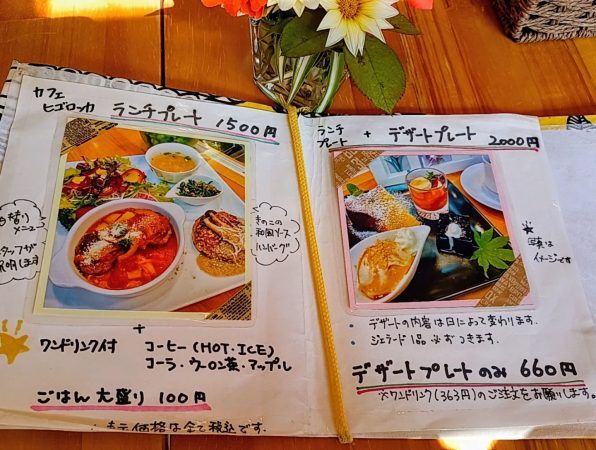 カフェ
ヒゴロッカ
ランチプレート 1500円
替り
メニュー
タッフが
説明します
きのこの
和風ソース
ハンバーグ
+
ワンドリンク付
コーヒー(HOT・ICE)
コーラ・ウーロン茶・アップル
ごはん大盛り 100円
価格は全て税込です.
ランチ
プレート
+ デザートプレート 2000円
写真は
イメージです
・デザートの内容は日によって変わります.
・ジェラード1品必ずつきます.
デザートプレートのみ 660円
※ワンドリンク(363円)のご注文をお願いします。